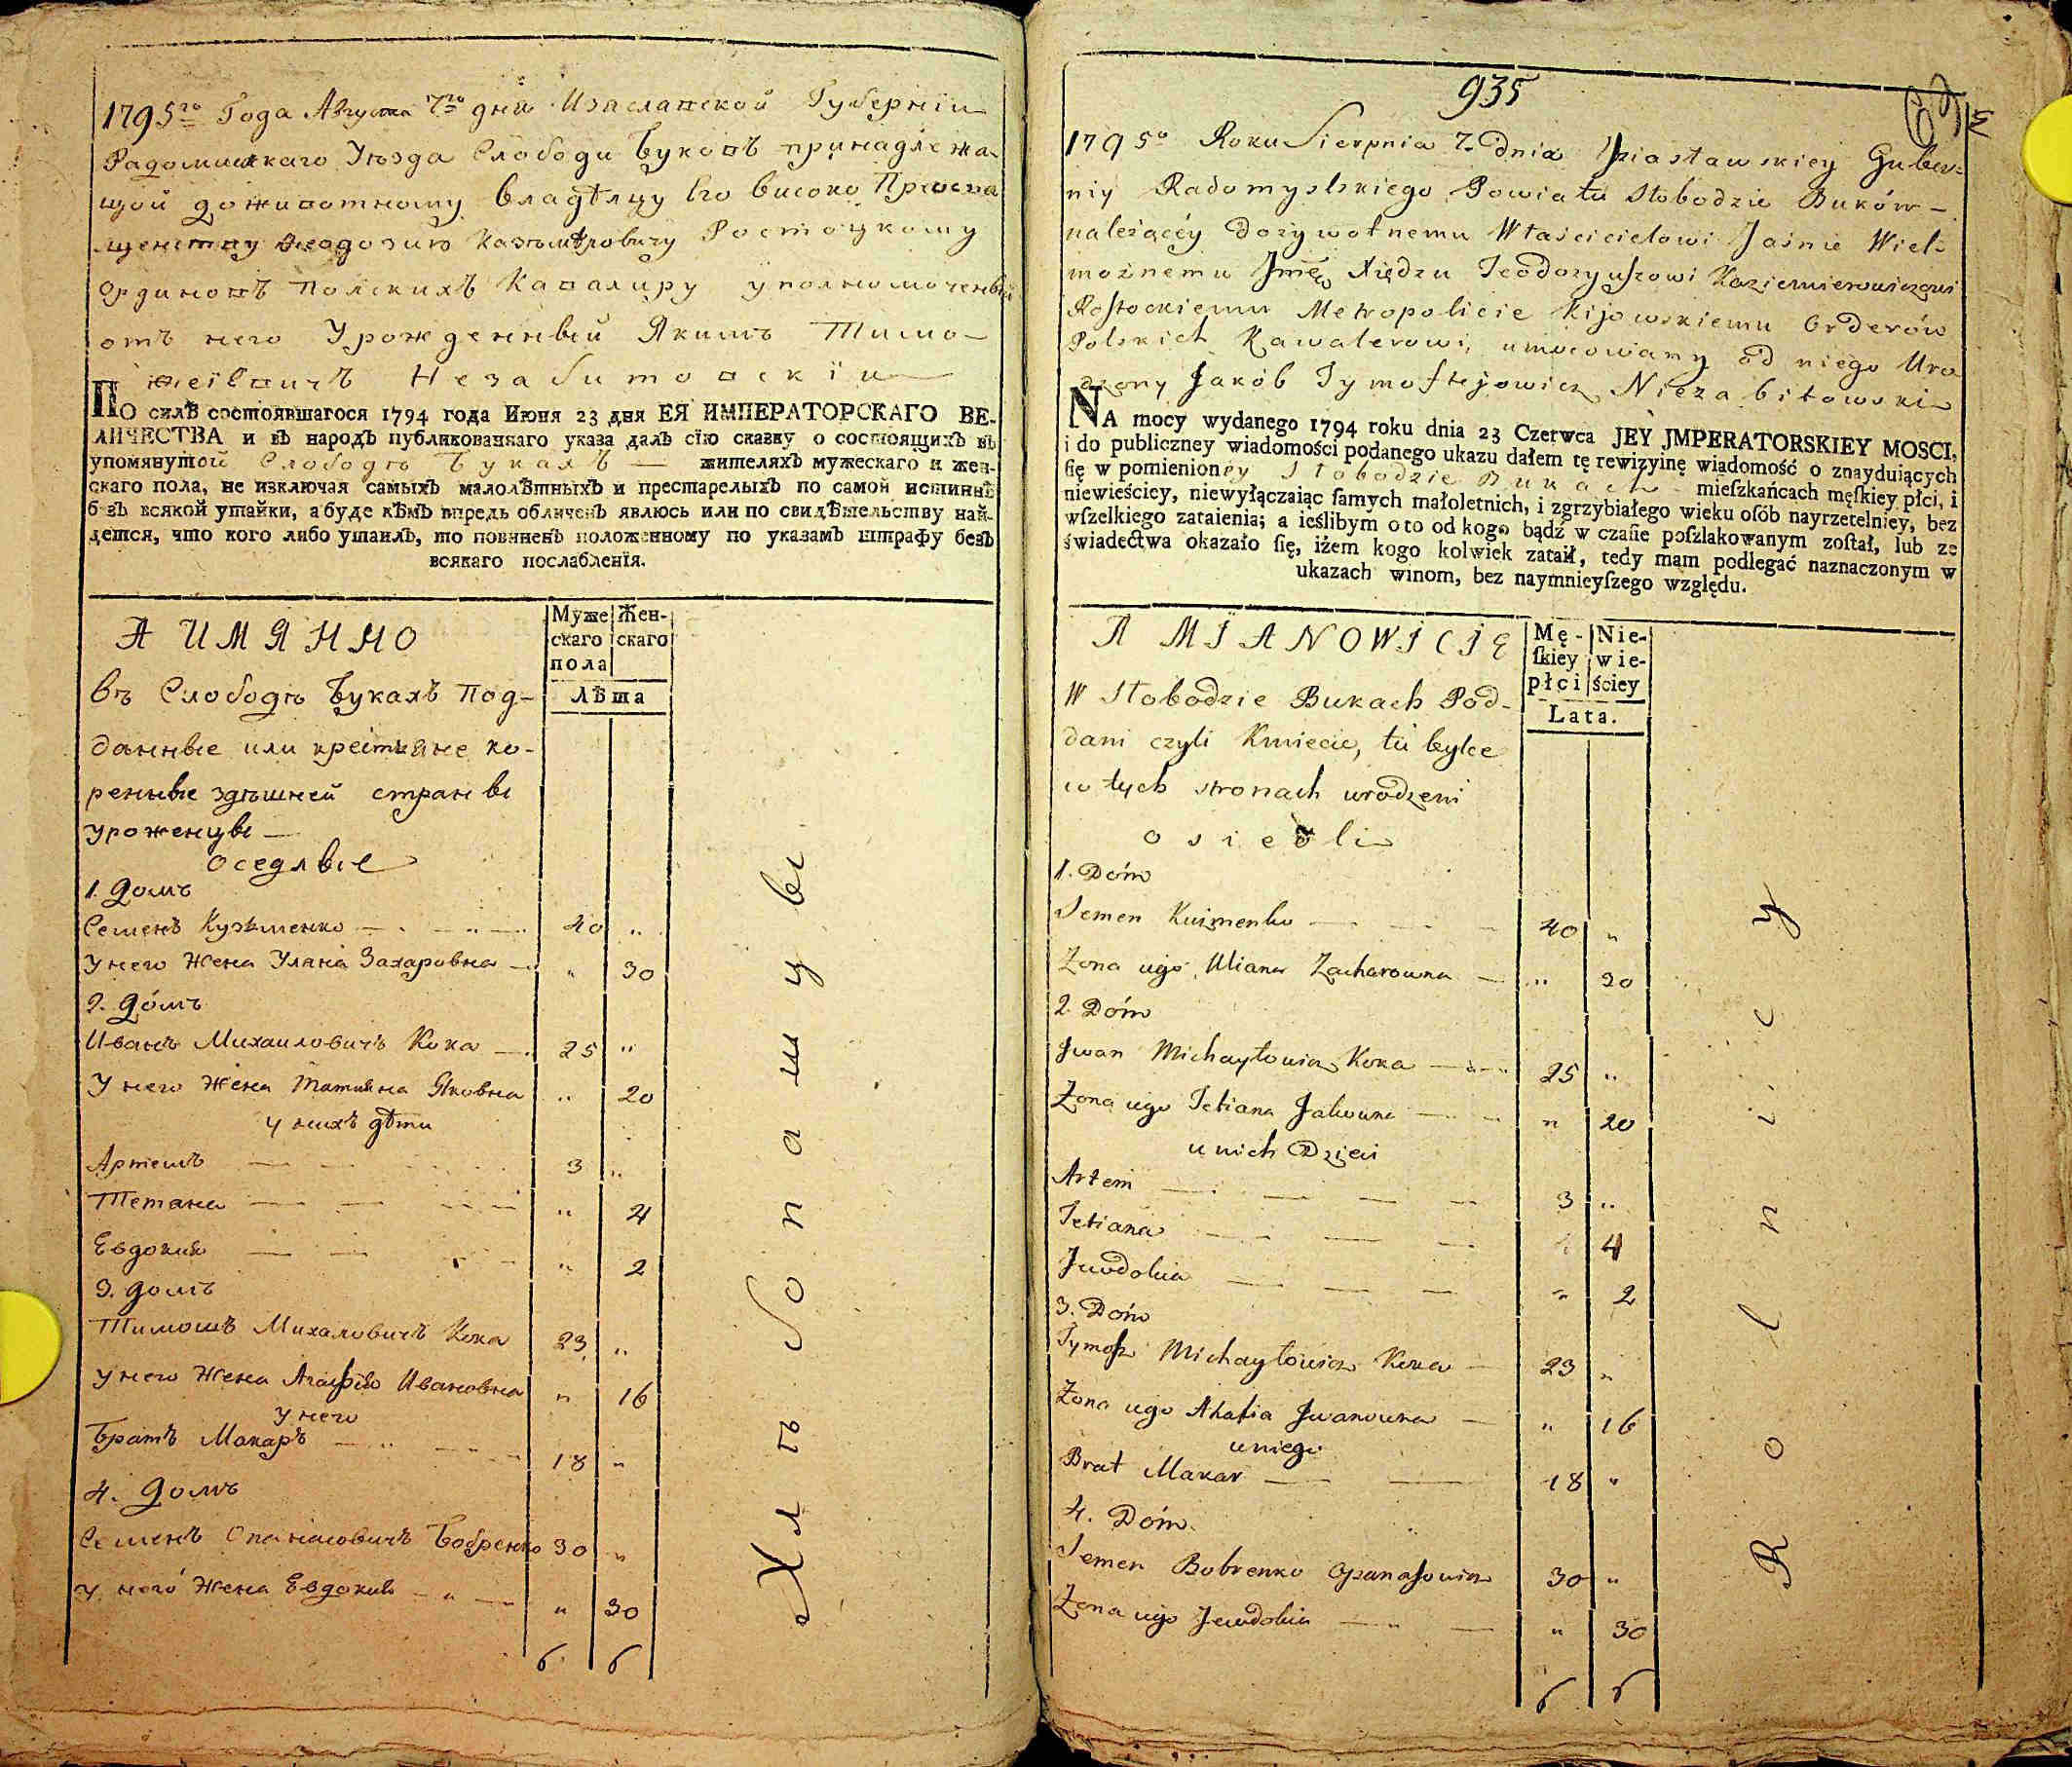 1795го Года Августа 7го дня Изаславской Губернїи
Радомишлскаго Уѣзда Слободи Буковъ принадлежа-
щой доживотному владѣлцу Его високо Преосвя
щенству Феодозию Казъмѣровичу Ростоцкому
Ординовъ Полскихъ Кавалиру уполномоченный
отъ него Урожденный Якимъ Тимо-
феiевичъ Незабитовскiи
ПО силѣ состоявшагося 1794 года Июня 23 дня ЕЯ ИМПЕРАТОРСКАГО ВЕ-
ЛИЧЕСТВА и въ народъ публикованнаго указа далъ сїю сказку о состоящихъ въ
упомянутой Слободѣ Букахъ — жителяхъ мужескаго и жен-
скаго пола, не изключая самыхъ малолѣтныхъ и престарелыхъ по самой истиннѣ
безъ всякой утайки, а буде кѣмъ впредь обличенъ явлюсь или по свидѣтельству най-
дется, что кого либо утаилъ, то повиненъ положенному по указамъ штрафу безъ
всякаго послабленїя.
А ИМЯННО
Муже
скаго
пола
Жен-
скаго
Лѣта
въ Слободѣ Букахъ Под-
данные или крестияне ко-
ренные здѣшней страны
уроженцы —
оседлые
1. домъ
Семенъ Кузьменко — 40 "
У него жена Уляна Захаровна — " 30
2. домъ
Иванъ Михаиловичъ Кока — 25 "
У него жена Татияна Яковна " 20
у нихъ дѣти
Артемъ — 3 "
Тетяна — " 4
Евдокия — " 2
3. домъ
Тимошъ Михаловичъ Кока 23 "
у него жена Агафия Ивановна " 16
у него
Братъ Макаръ — 18 "
4. домъ
Семенъ Опанасовичъ Бобренко 30 "
у него жена Евдокия — " 30
6 6
Хлѣбопашцы
935
1795o Roku Sierpnia 7. dnia Iziasławskiey Guber-
niy Radomyslskiego Powiatu Słobodzie Buków —
należącéy dożywotnemu Właścicielowi Jaśnie Wiel-
możnemu Jmę Xiędzu Teodozyuszowi Kaziemierowiczowi
Rostockiemu Metropolicie Kijowskiemu Orderów
Polskich Kawalerowi, umocowany od niego Uro
dzony Jakób Tymoftejowicz Niezabitowski
NA mocy wydanego 1794 roku dnia 23 Czerwca JEY JMPERATORSKIEY MOSCI,
i do publiczney wiadomości podanego ukazu dałem tę rewizyinę wiadomość o znayduiących
ſię w pomienioney Słobodzie Bukach — mieſzkańcach męſkiey płci, i
niewieściey, niewyłączaiąc ſamych małoletnich, i zgrzybiałego wieku oſób nayrzetelniey, bez
wſzelkiego zataienia; a ieślibym o to od kogo bądź w czaſie poſzlakowanym zoſtał, lub ze
świadectwa okazało ſię, iżem kogo kolwiek zataił, tedy mam podlegać naznaczonym w
ukazach winom, bez naymnieyſzego względu.
A MIANOWICIE
Mę-
ſkiey
płci
Nie-
wie-
ściey
Lata.
W Słobodzie Bukach Pod-
dani czyli Kmiecie, tu bylce
w tych stronach urodzeni
osiedli
1. Dóm
Semen Kuźmenko — 40 "
Żona iego Uliana Zacharowna — " 30
2. Dóm
Jwan Michayłowicz Koka — 25 "
Żona iego Tetiana Jakowna — " 20
u nich Dzieci
Artem — 3 "
Tetiana — " 4
Jewdokia — " 2
3. Dóm
Tymosz Michayłowicz Koka — 23 "
Żona iego Ahafia Jwanowna — " 16
u niego
Brat Makar — 18 "
4. Dóm
Semen Bobrenko Opanasowicz 30 "
Żona iego Jewdokia — " 30
6 6
Rolnicy